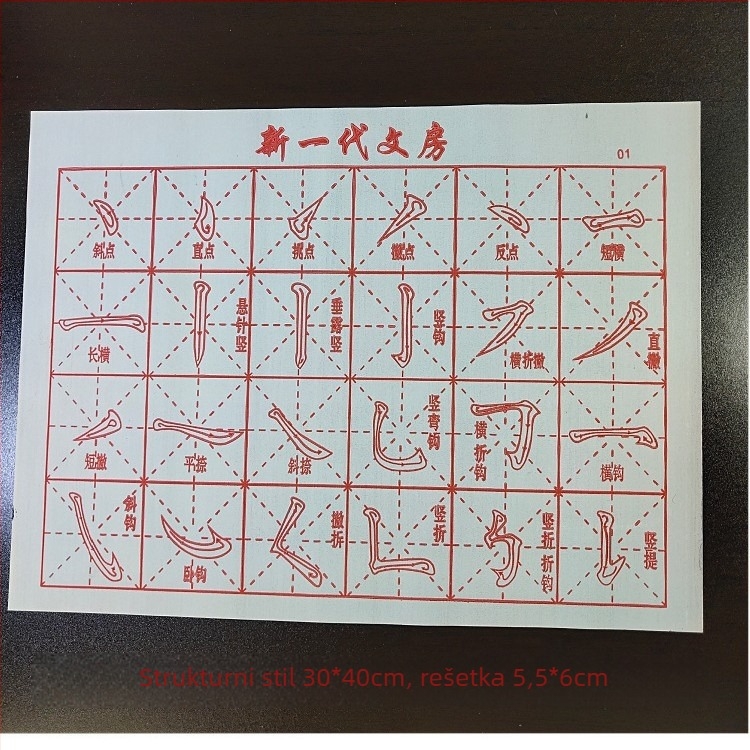 新一代文房
01
斜点
直点
挑点
撇点
反点
短横
长横
悬针竖
垂露竖
竖钩
横折撇
直撇
短撇
平捺
斜捺
竖弯钩
横折钩
横钩
斜钩
卧钩
撇折
竖折
竖折折钩
竖提
Strukturni stil 30*40cm, rešetka 5,5*6cm